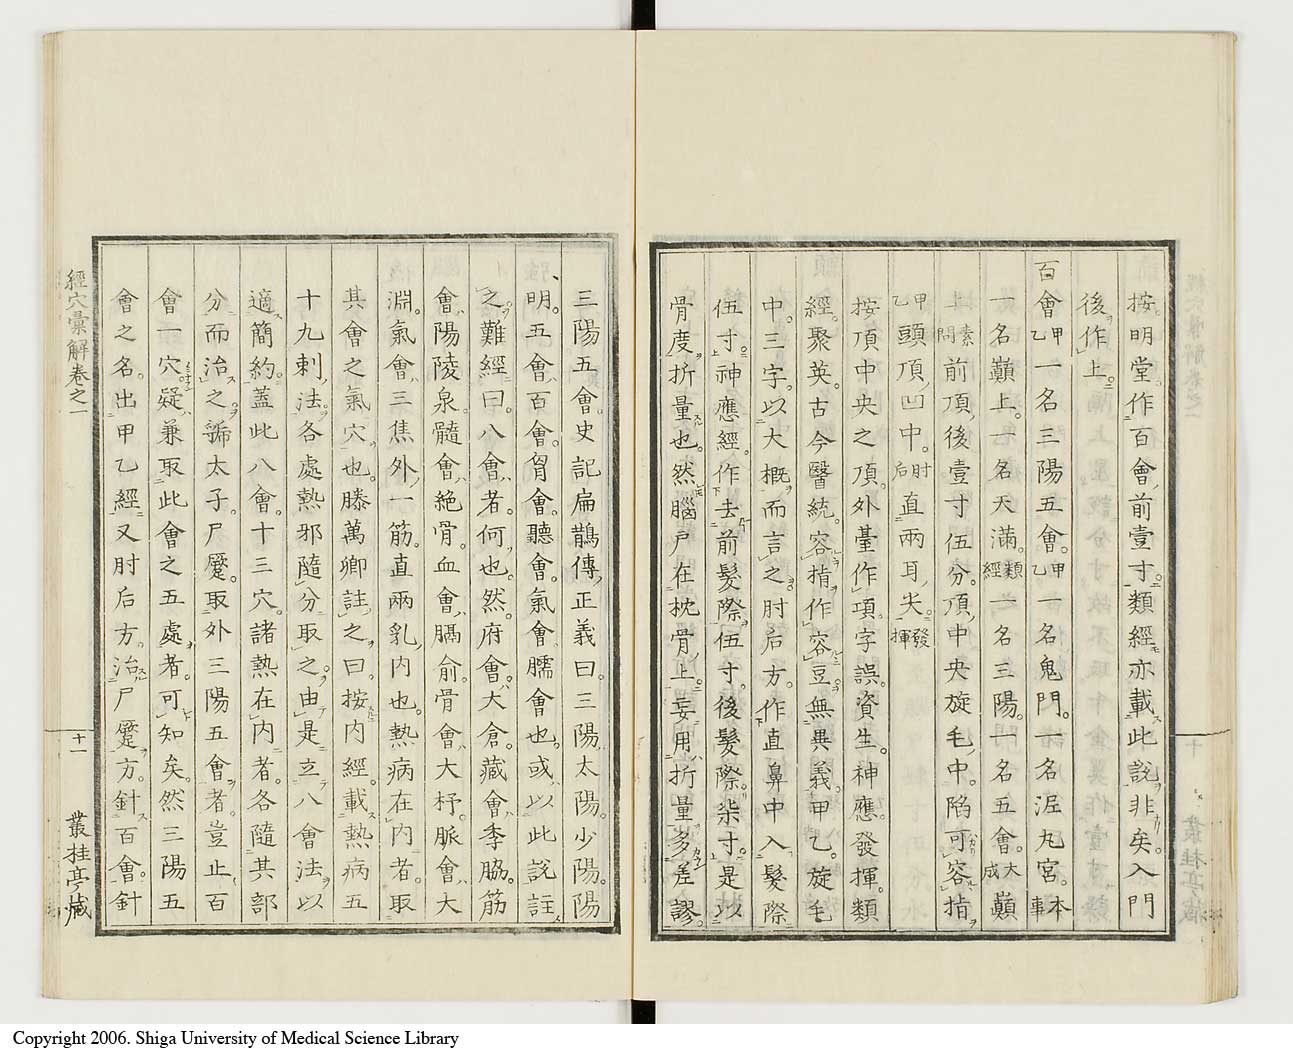 按明堂作百會前壹寸類經亦載此說非矣入門
後作上
百會甲乙一名三陽五會甲乙一名鬼門一名泥丸宮本事
一名巓上一名天滿類經一名三陽一名五會大成巓
素問前頂後壹寸伍分頂中央旋毛中陷可容指
甲乙頭頂凹中肘后直兩耳尖發揮
按頂中央之頂外臺作項字誤資生神應發揮類
經聚英古今醫統容指作容豆無異義甲乙旋毛
中三字以大概而言之肘后方作直鼻中入髮際
伍寸神應經作去前髮際伍寸後髮際柒寸是以
骨度折量也然腦戶在枕骨上妄用折量多差謬
三陽五會史記扁鵲傳正義曰三陽太陽少陽陽
明五會百會胷會聽會氣會臑會也或以此說註
之難經曰八會者何也然府會大倉藏會季脇筋
會陽陵泉髓會絕骨血會膈俞骨會大杼脈會大
淵氣會三焦外一筋直兩乳內也熱病在內者取
其會之氣穴也滕萬卿註之曰按內經載熱病五
十九刺法各處熱邪隨分取之由是立八會法以
適簡約蓋此八會十三穴諸熱在內者各隨其部
分而治之虢太子尸蹷取外三陽五會者豈止百
會一穴疑兼取此會之五處者可知矣然三陽五
會之名出甲乙經又肘后方治尸蹷方針百會針
經穴彙解卷之一
十一
叢桂亭藏
Copyright 2006. Shiga University of Medical Science Library